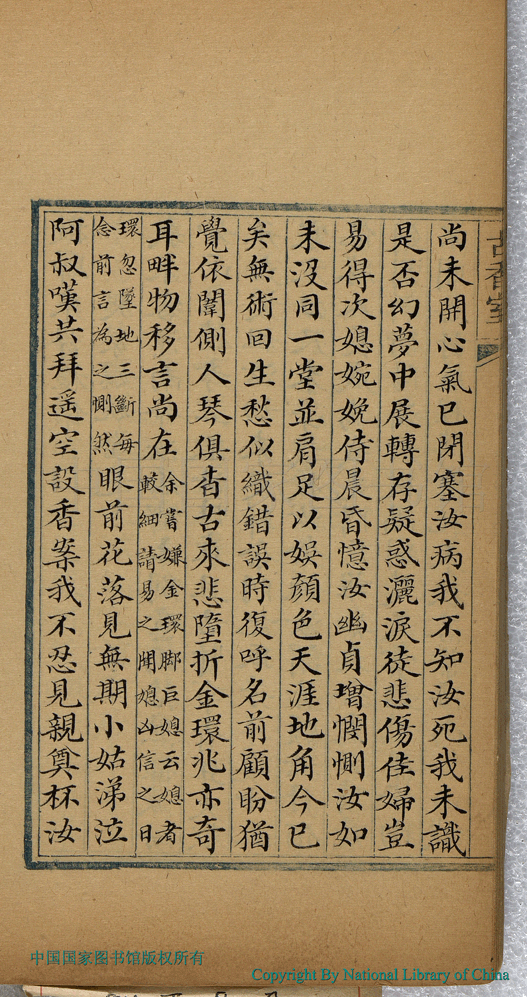 古香室
尚未開心氣已閉塞汝病我不知汝死我未識
是否幻夢中展轉存疑惑灑淚徒悲傷佳婦豈
易得次媳婉娩侍晨昏憶汝幽貞增憫惻汝如
未沒同一堂並肩足以娛顏色天涯地角今已
矣無術回生愁似織錯誤時復呼名前顧盼猶
覺依闈側人琴俱杳古來悲墮折金環兆亦奇
耳畔物移言尚在余嘗嫌金環脚巨媳云媳者
較細請易之聞媳凶信之日
環忽墜地三斷每
念前言為之惻然眼前花落見無期小姑涕泣
阿叔嘆共拜遥空設香案我不忍見親奠杯汝
中国国家图书馆版权所有
Copyright By National Library of China